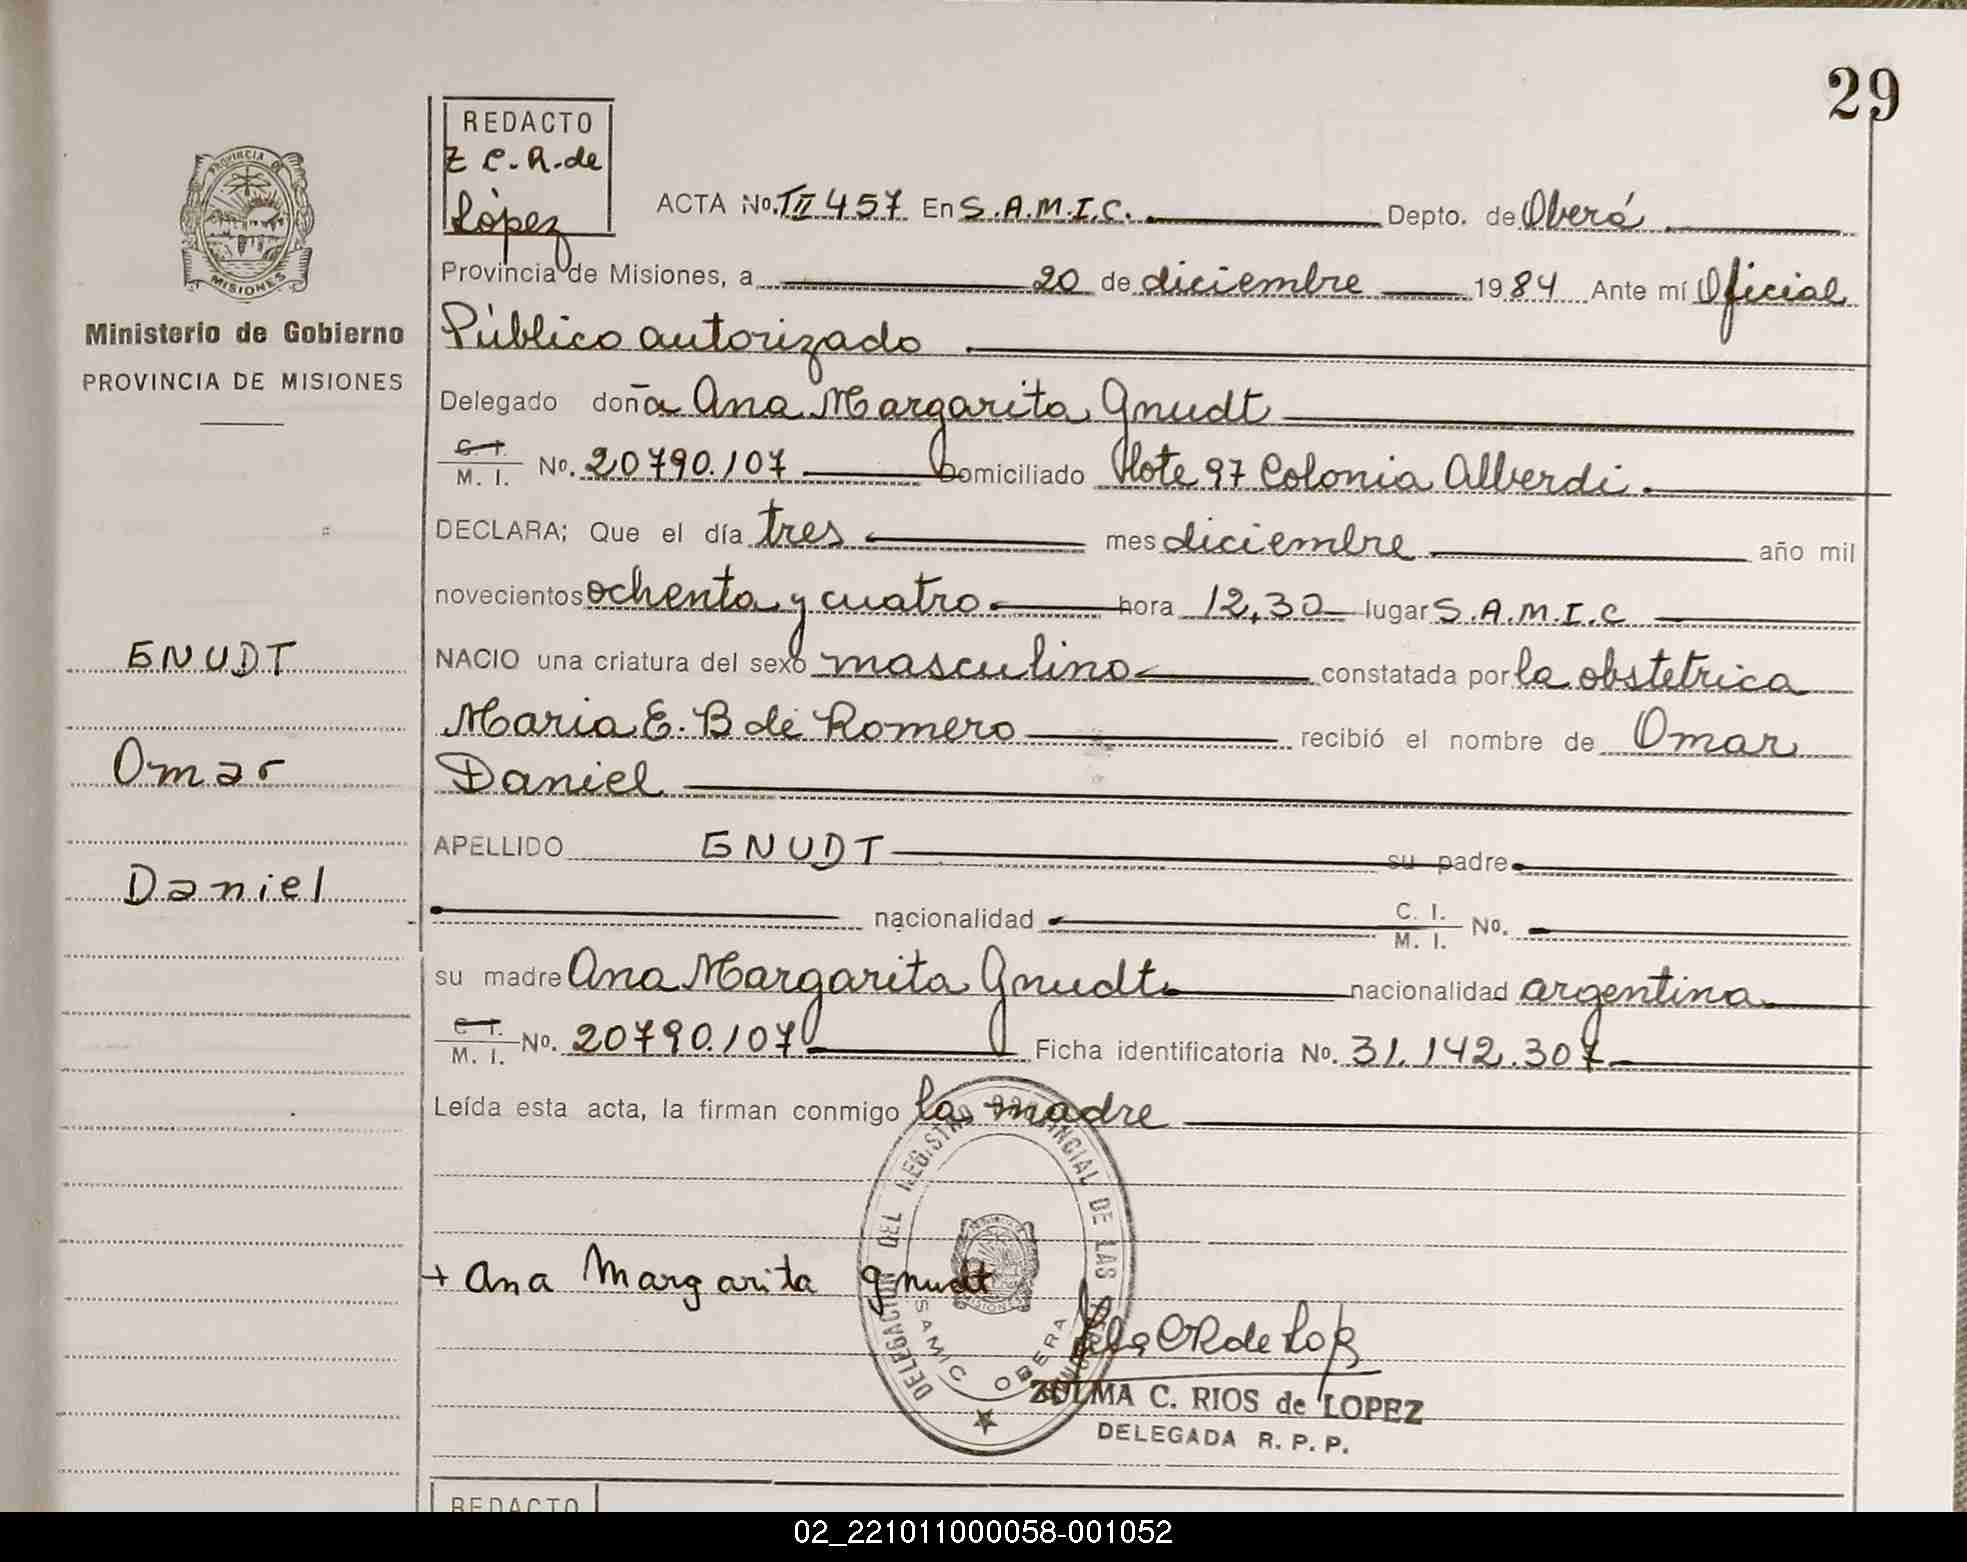 29
REDACTO
Z C. R. de
López
PROVINCIA DE
MISIONES
Ministerio de Gobierno
PROVINCIA DE MISIONES
ACTA No. TII 457 En S.A.M.I.C. Depto. de Oberá
Provincia de Misiones, a 20 de diciembre 1984 Ante mí Oficial
Público autorizado
Delegado doña Ana Margarita Gnudt
C. I. / M. I. No. 20790.107 Domiciliado Lote 97 Colonia Alberdi.
DECLARA; Que el día tres mes diciembre año mil
novecientos ochenta y cuatro hora 12,30 lugar S.A.M.I.C
NACIO una criatura del sexo masculino constatada por la obstetrica
Maria E. B de Romero recibió el nombre de Omar
Daniel
APELLIDO GNUDT su padre
nacionalidad C. I. / M. I. No.
su madre Ana Margarita Gnudt nacionalidad argentina
C. I. / M. I. No. 20790.107 Ficha identificatoria No. 31.142.307
Leída esta acta, la firman conmigo la madre
GNUDT
Omar
Daniel
+ Ana Margarita gnudt
DELEGACION DEL REGISTRO PROVINCIAL DE LAS PERSONAS
SAMIC OBERA
MISIONES
ZULMA C. RIOS de LOPEZ
DELEGADA R. P. P.
REDACTO
02_221011000058-001052